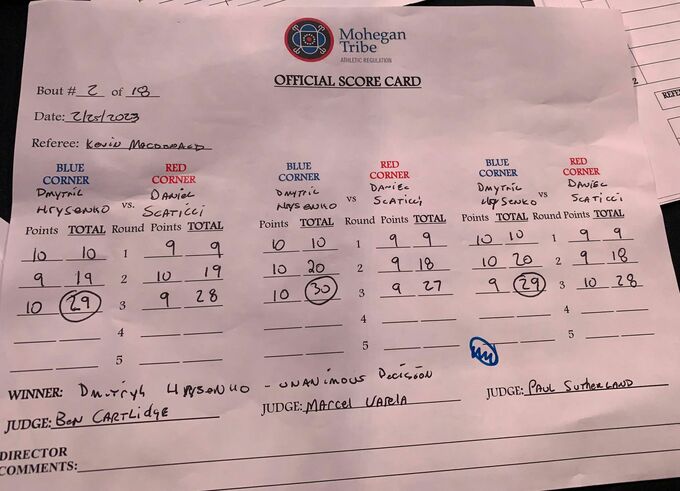 Mohegan
Tribe
ATHLETIC REGULATION
OFFICIAL SCORE CARD
Bout # 2 of 18
Date: 2/25/2023
Referee: Kevin MacDonald
BLUE CORNER RED CORNER BLUE CORNER RED CORNER BLUE CORNER RED CORNER
Dmytrii Hrysenko vs. Daniel Scaticci Dmytrii Hrysenko vs Daniel Scaticci Dmytrii Hrysenko vs Daniel Scaticci
Points TOTAL Round Points TOTAL Points TOTAL Round Points TOTAL Points TOTAL Round Points TOTAL
10 10 1 9 9 10 10 1 9 9 10 10 1 9 9
9 19 2 10 19 10 20 2 9 18 10 20 2 9 18
10 29 3 9 28 10 30 3 9 27 9 29 3 10 28
4 4 4
5 5 5
WINNER: Dmitryh Hrysenko - Unanimous Decision
JUDGE: Ben Cartlidge JUDGE: Marcel Varela JUDGE: Paul Sutherland
DIRECTOR
COMMENTS: